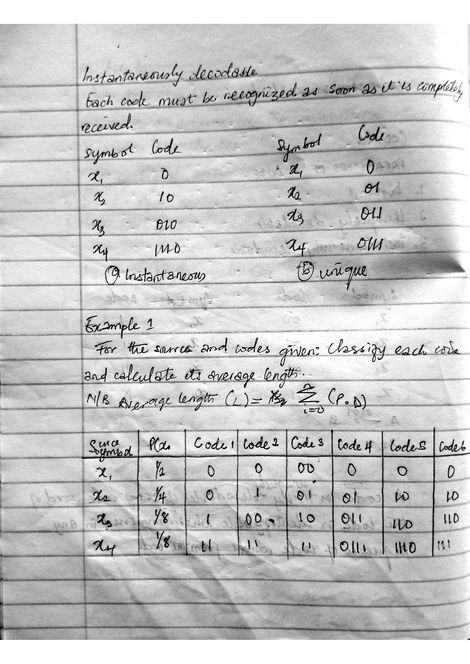 Instantaneously decodable
Each code must be recognized as soon as it is completely
received.
Symbol Code Symbol Code
x₁ 0 x₁ 0
x₂ 10 x₂ 01
x₃ 010 x₃ 011
x₄ 1110 x₄ 0111
(a) Instantaneous (b) unique
Example 1
For the sources and codes given: Classify each code
and calculate its average length...
N/B Average length (L) = Σ i=0 (P. D)
Symbol P(x₁ Code 1 Code 2 Code 3 Code 4 Code 5 Code 6
x₁ 1/2 0 0 00 0 0 0
x₂ 1/4 0 1 01 01 10 10
x₃ 1/8 1 00 10 011 110 110
x₄ 1/8 11 11 11 0111 1110 111